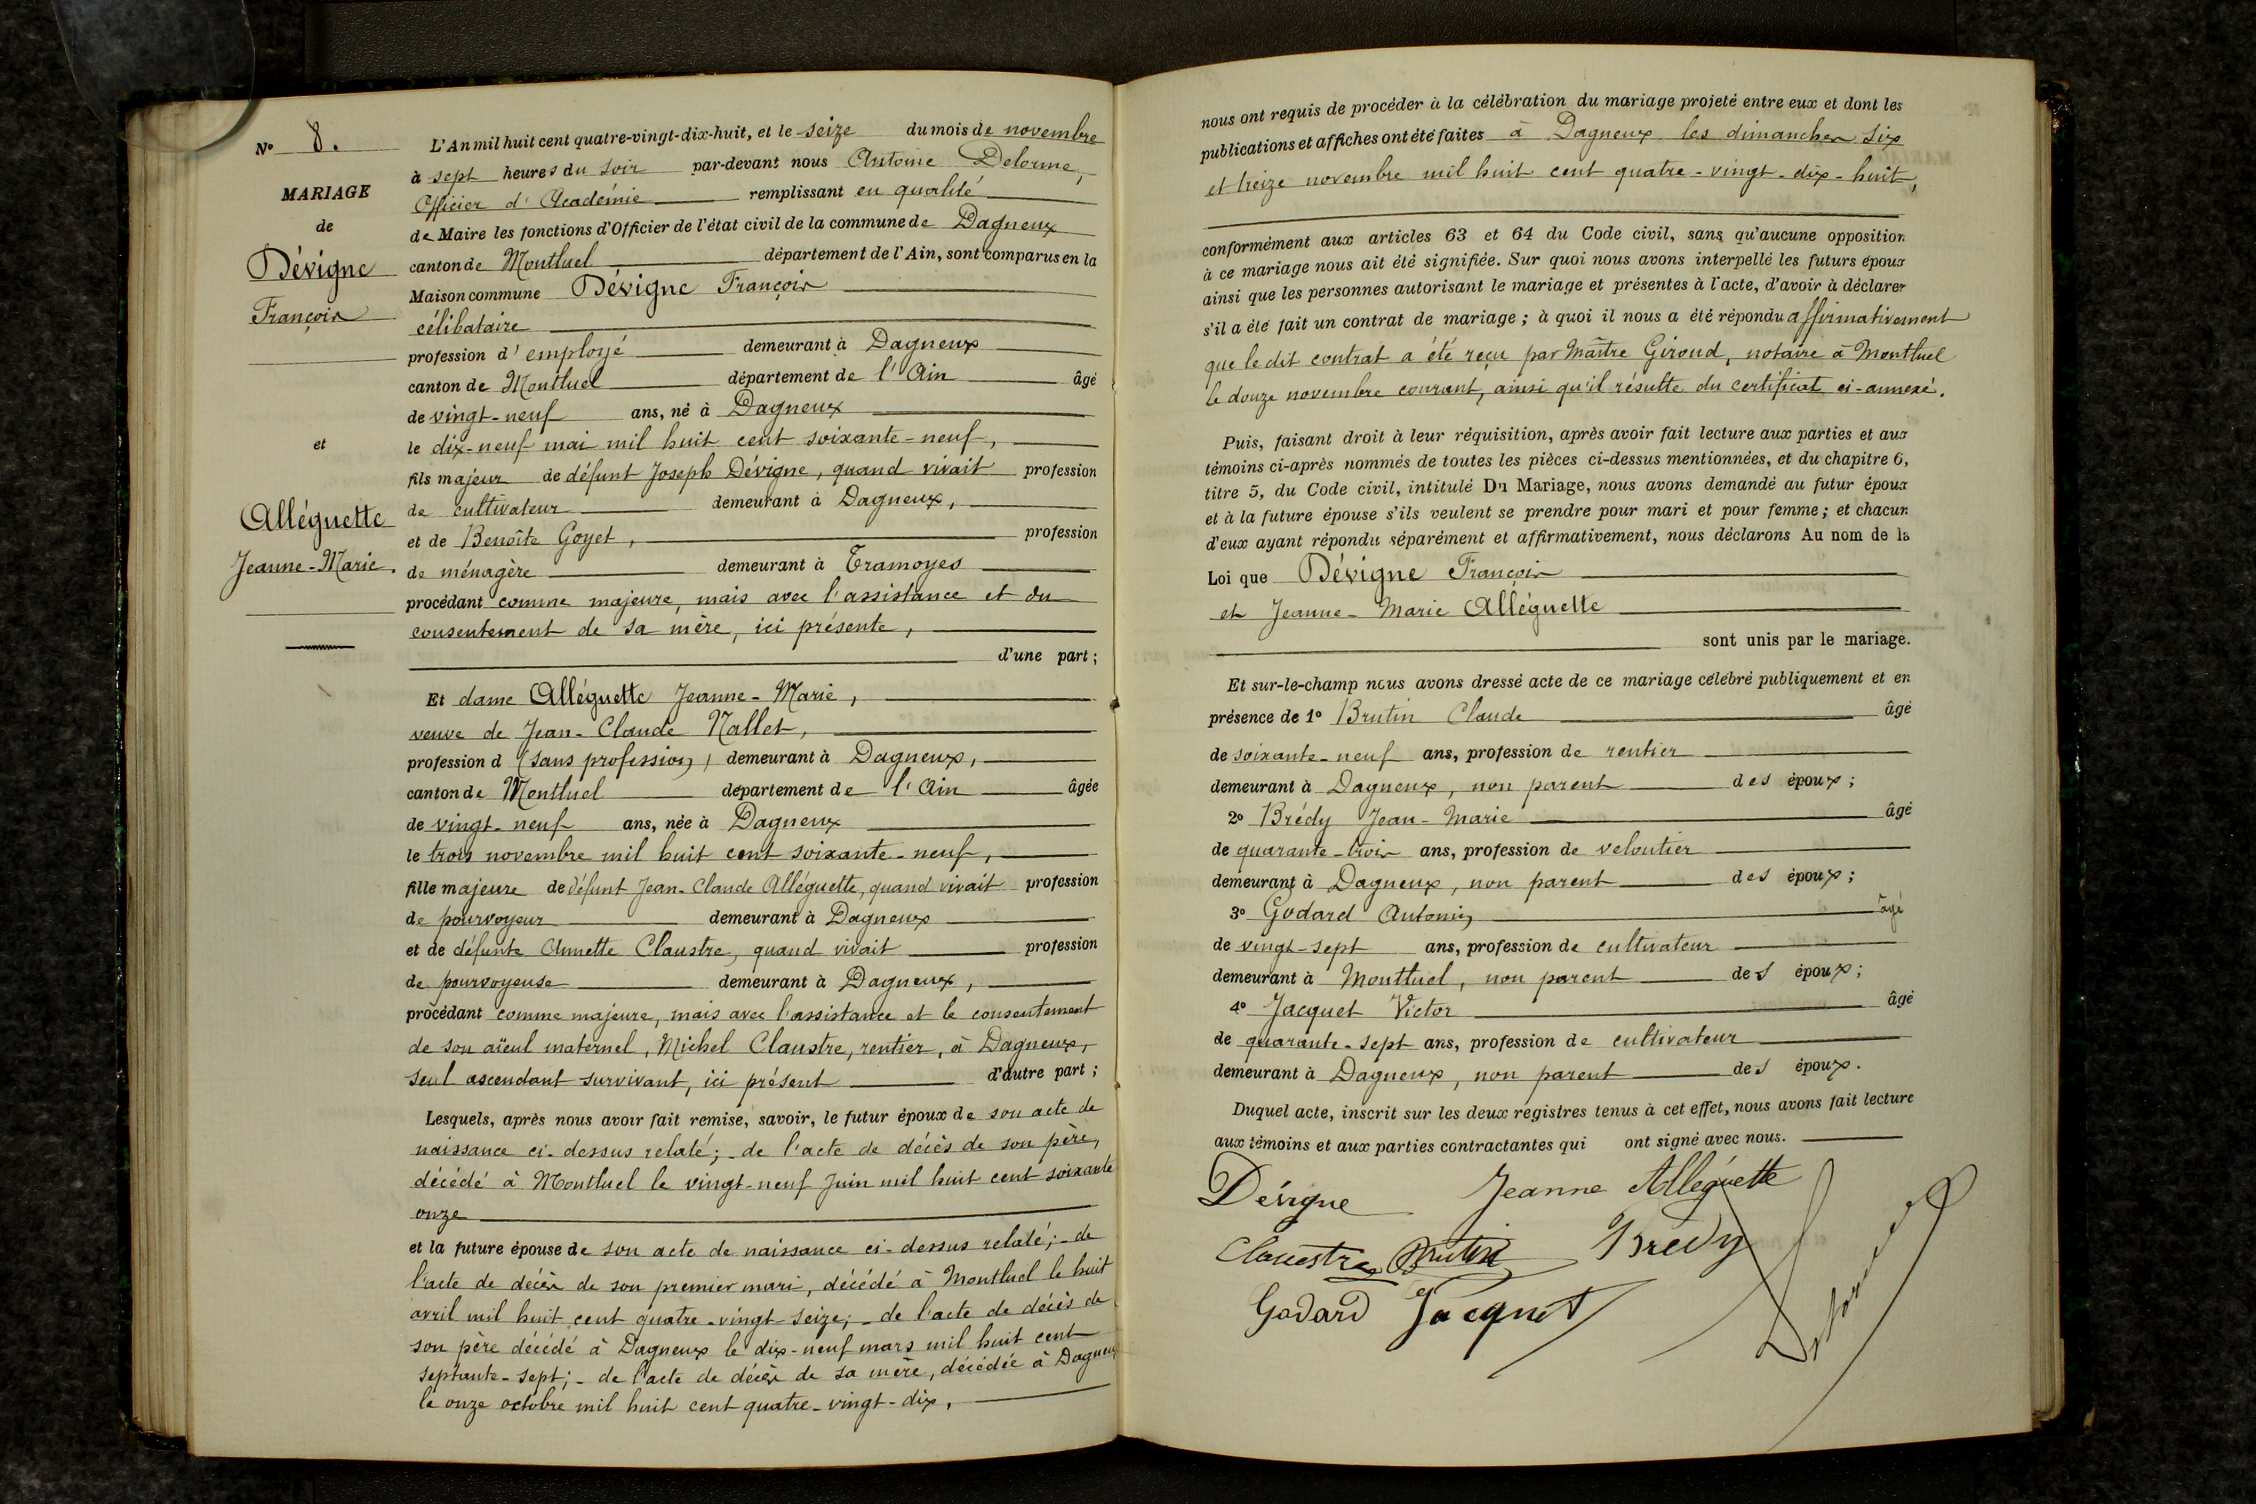 N° 8.
MARIAGE
de
Dévigne
François
et
Alléguette
Jeanne-Marie.
L'An mil huit cent quatre-vingt-dix-huit, et le seize du mois de novembre
à sept heures du soir par-devant nous Antoine Delorme,
Officier d'Académie remplissant en qualité
de Maire les fonctions d'Officier de l'état civil de la commune de Dagneux
canton de Montluel département de l'Ain, sont comparus en la
Maison commune Dévigne François
célibataire
profession d'employé demeurant à Dagneux
canton de Montluel département de l'Ain âgé
de vingt-neuf ans, né à Dagneux
le dix-neuf mai mil huit cent soixante-neuf,
fils majeur de défunt Joseph Dévigne, quand vivait profession
de cultivateur demeurant à Dagneux,
et de Benoîte Goyet, profession
de ménagère demeurant à Tramoyes
procédant comme majeure, mais avec l'assistance et du
consentement de sa mère, ici présente,
d'une part;
Et dame Alléguette Jeanne-Marie,
veuve de Jean-Claude Nallet,
profession d (sans profession) demeurant à Dagneux,
canton de Montluel département de l'Ain âgée
de vingt-neuf ans, née à Dagneux
le trois novembre mil huit cent soixante-neuf,
fille majeure de défunt Jean-Claude Alléguette, quand vivait profession
de pourvoyeur demeurant à Dagneux
et de défunte Annette Claustre, quand vivait profession
de pourvoyeuse demeurant à Dagneux,
procédant comme majeure, mais avec l'assistance et le consentement
de son aïeul maternel, Michel Claustre, rentier, à Dagneux,
seul ascendant survivant, ici présent d'autre part;
Lesquels, après nous avoir fait remise, savoir, le futur époux de son acte de
naissance ci-dessus relaté; - de l'acte de décès de son père,
décédé à Montluel le vingt-neuf Juin mil huit cent soixante
onze
et la future épouse de son acte de naissance ci-dessus relaté; - de
l'acte de décès de son premier mari, décédé à Montluel le huit
avril mil huit cent quatre-vingt-seize; - de l'acte de décès de
son père décédé à Dagneux le dix-neuf mars mil huit cent
septante-sept; - de l'acte de décès de sa mère, décédée à Dagneux
le onze octobre mil huit cent quatre-vingt-dix,
nous ont requis de procéder à la célébration du mariage projeté entre eux et dont les
publications et affiches ont été faites à Dagneux les dimanches six
et treize novembre mil huit cent quatre-vingt-dix-huit,
conformément aux articles 63 et 64 du Code civil, sans qu'aucune opposition
à ce mariage nous ait été signifiée. Sur quoi nous avons interpellé les futurs époux
ainsi que les personnes autorisant le mariage et présentes à l'acte, d'avoir à déclarer
s'il a été fait un contrat de mariage; à quoi il nous a été répondu affirmativement
que le dit contrat a été reçu par Maître Giroud, notaire à Montluel
le douze novembre courant, ainsi qu'il résulte du certificat ci-annexé.
Puis, faisant droit à leur réquisition, après avoir fait lecture aux parties et aux
témoins ci-après nommés de toutes les pièces ci-dessus mentionnées, et du chapitre 6,
titre 5, du Code civil, intitulé Du Mariage, nous avons demandé au futur époux
et à la future épouse s'ils veulent se prendre pour mari et pour femme; et chacun
d'eux ayant répondu séparément et affirmativement, nous déclarons Au nom de la
Loi que Dévigne François
et Jeanne-Marie Alléguette
sont unis par le mariage.
Et sur-le-champ nous avons dressé acte de ce mariage célébré publiquement et en
présence de 1° Brutin Claude âgé
de soixante-neuf ans, profession de rentier
demeurant à Dagneux, non parent des époux;
2° Brédy Jean-Marie âgé
de quarante-trois ans, profession de veloutier
demeurant à Dagneux, non parent des époux;
3° Godard Antonin âgé
de vingt-sept ans, profession de cultivateur
demeurant à Montluel, non parent des époux;
4° Jacquet Victor âgé
de quarante-sept ans, profession de cultivateur
demeurant à Dagneux, non parent des époux.
Duquel acte, inscrit sur les deux registres tenus à cet effet, nous avons fait lecture
aux témoins et aux parties contractantes qui ont signé avec nous.
Dévigne Jeanne Alléguette
Clauestre Brutin Bredy
Godard Jacquet Delorme